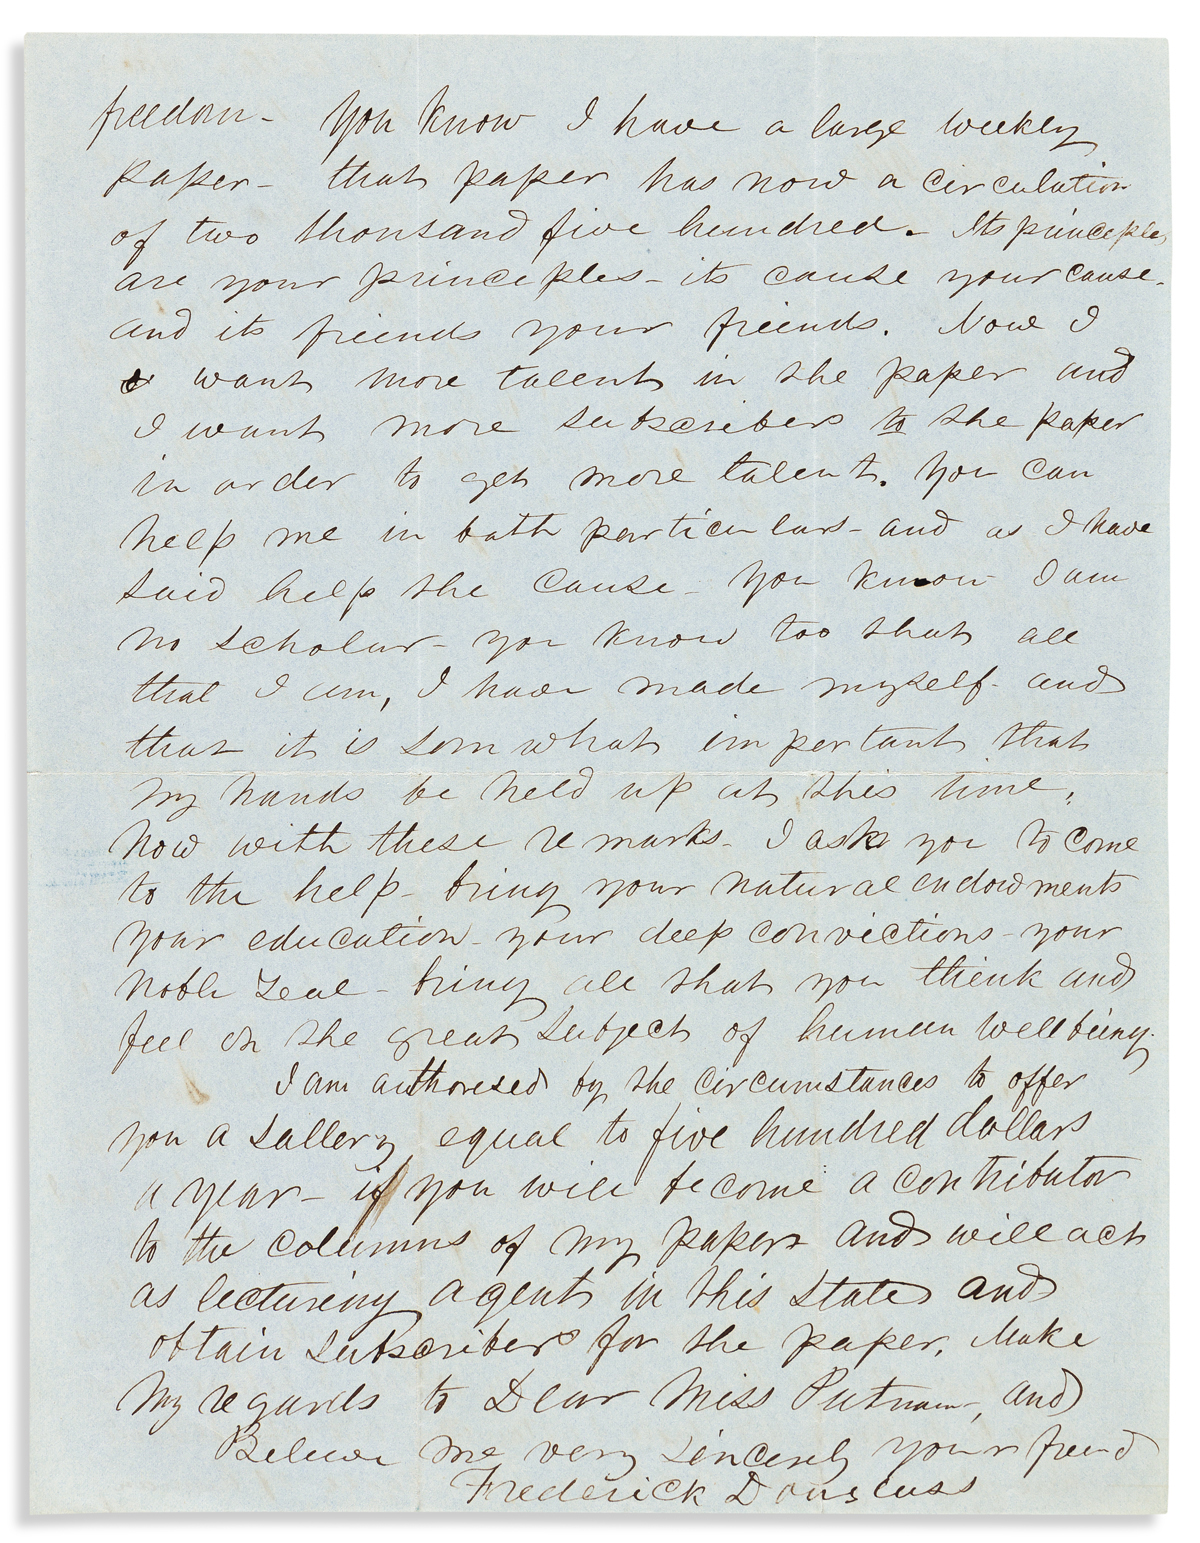 freedom - You know I have a large weekly
paper - that paper has now a circulation
of two thousand five hundred. - Its principles
are your principles - its cause your cause -
and its friends your friends. Now I
want more talent in the paper and
I want more subscribers to the paper
in order to get more talent. You can
help me in both particulars - and as I have
said help the cause - You know I am
no scholar - you know too that all
that I am, I have made myself - and
that it is somwhat important that
my hands be held up at this time,
Now with these remarks - I ask you to come
to the help - bring your natural endowments
your education - your deep convictions - your
noble zeal - bring all that you think and
feel on the great subject of human wellbeing.
I am authorised by the circumstances to offer
you a sallery equal to five hundred dollars
a year - if you will become a contributor
to the columns of my paper and will act
as lecturing agent in this State and
obtain subscribers for the paper. Make
my regards to Dear Miss Putnam -, and
Believe me very sincerely your friend
Frederick Douglass